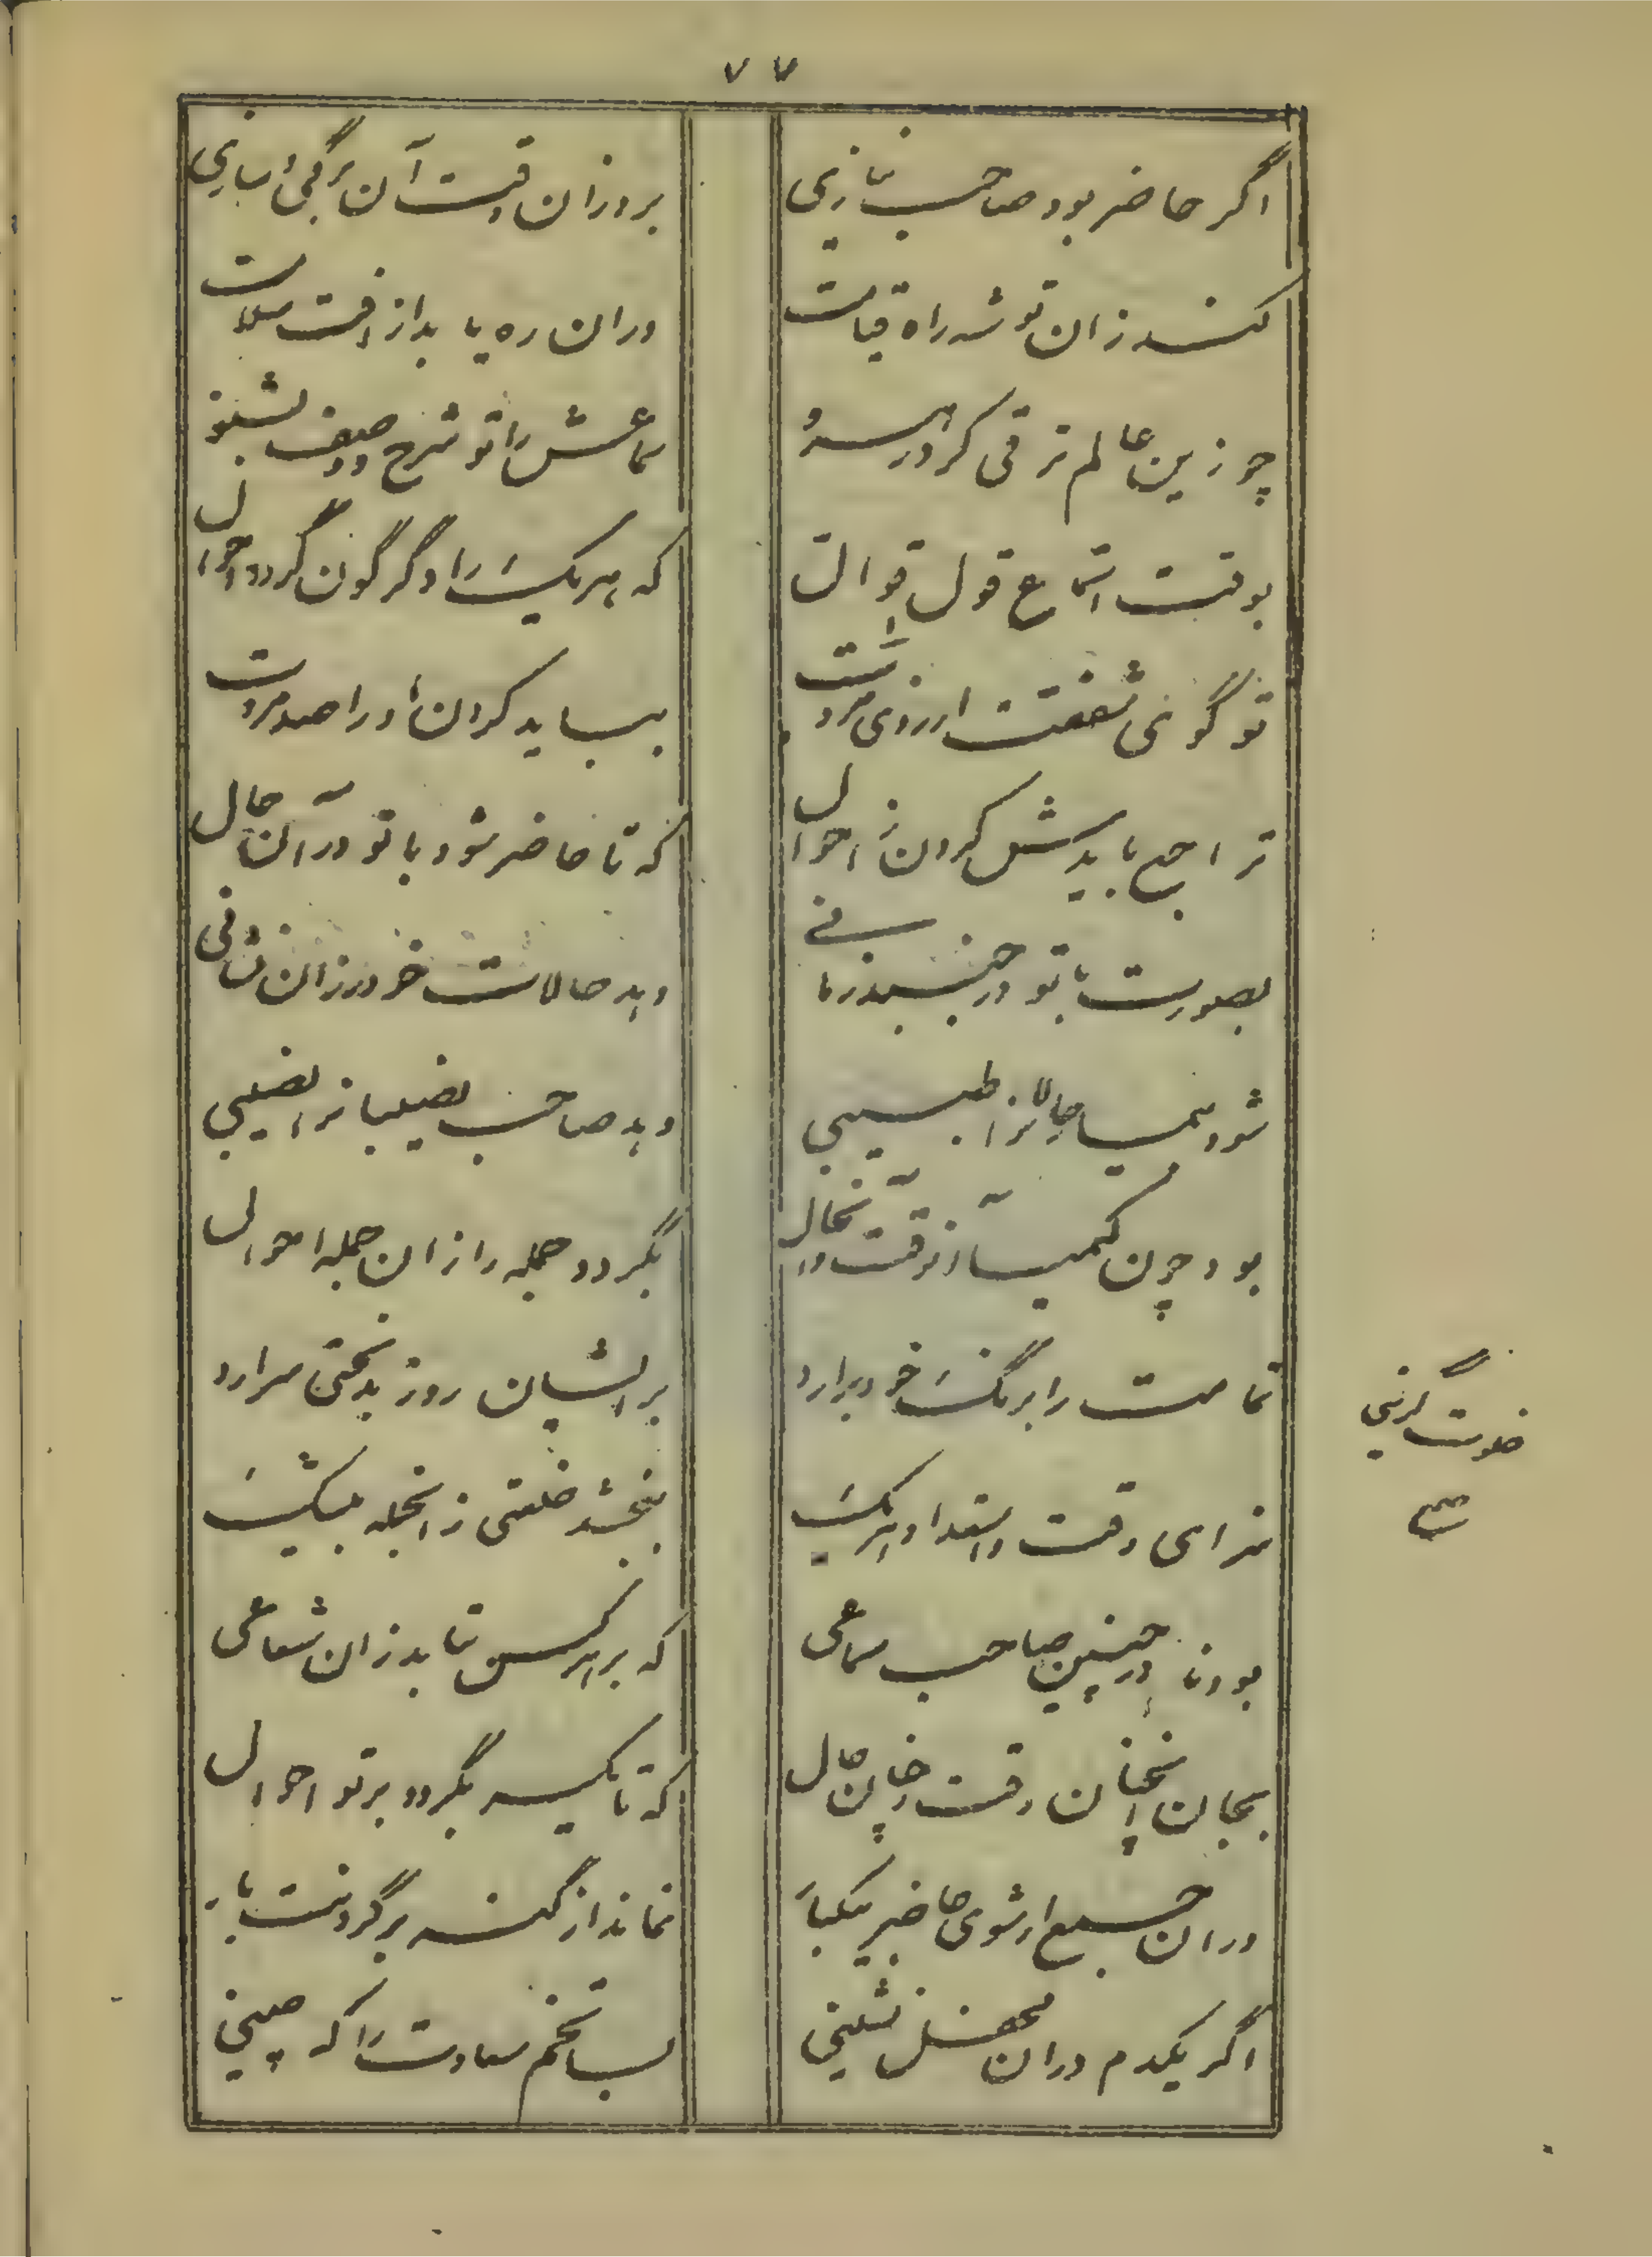 ۷۷
اگر حاضر بود صاحب نیازی
برد زان وقت آن برگی و سازی
کند زان توشه راه قیامت
در ان ره یابد از افت سلامت
چو زین عالم ترقی کرد در سرو
سماعش را تو شرح و وصف بشنو
بوقت استماع قول قوال
که هر یک را دگرگون گردد احوال
تو گوئی شفقت ارزوی مروت
بباید کردن او را صد مروت
ترا جمع بایدش کردن ز احوال
که تا حاضر شود با تو در آن حال
بصورت با تو در جنبد زمانی
دهد حالات خود زان نشانی
شود بیمار حالانرا طبیبی
دهد صاحب نصیبانرا نصیبی
بود چون کیمیا آنوقت و آنحال
بگردد جمله را زان جمله احوال
تمامت را برنگ خود برارد
بر ایشان روز بدبختی سرارد
سزای وقت و استعداد هر یک
ببخشد خلعتی زانجمله بیشک
بود نادر چنین صاحب سماعی
که بر هر کس بتابد زان شعاعی
بجان انچنان وقت و چنان حال
که تا یکسر بگردد بر تو احوال
در ان جمع ار شوی حاضر بیکبار
نماند از گنه بر گردنت بار
اگر یکدم در ان محفل نشینی
بسا تخم سعادت را که چینی
خلوت گزینی